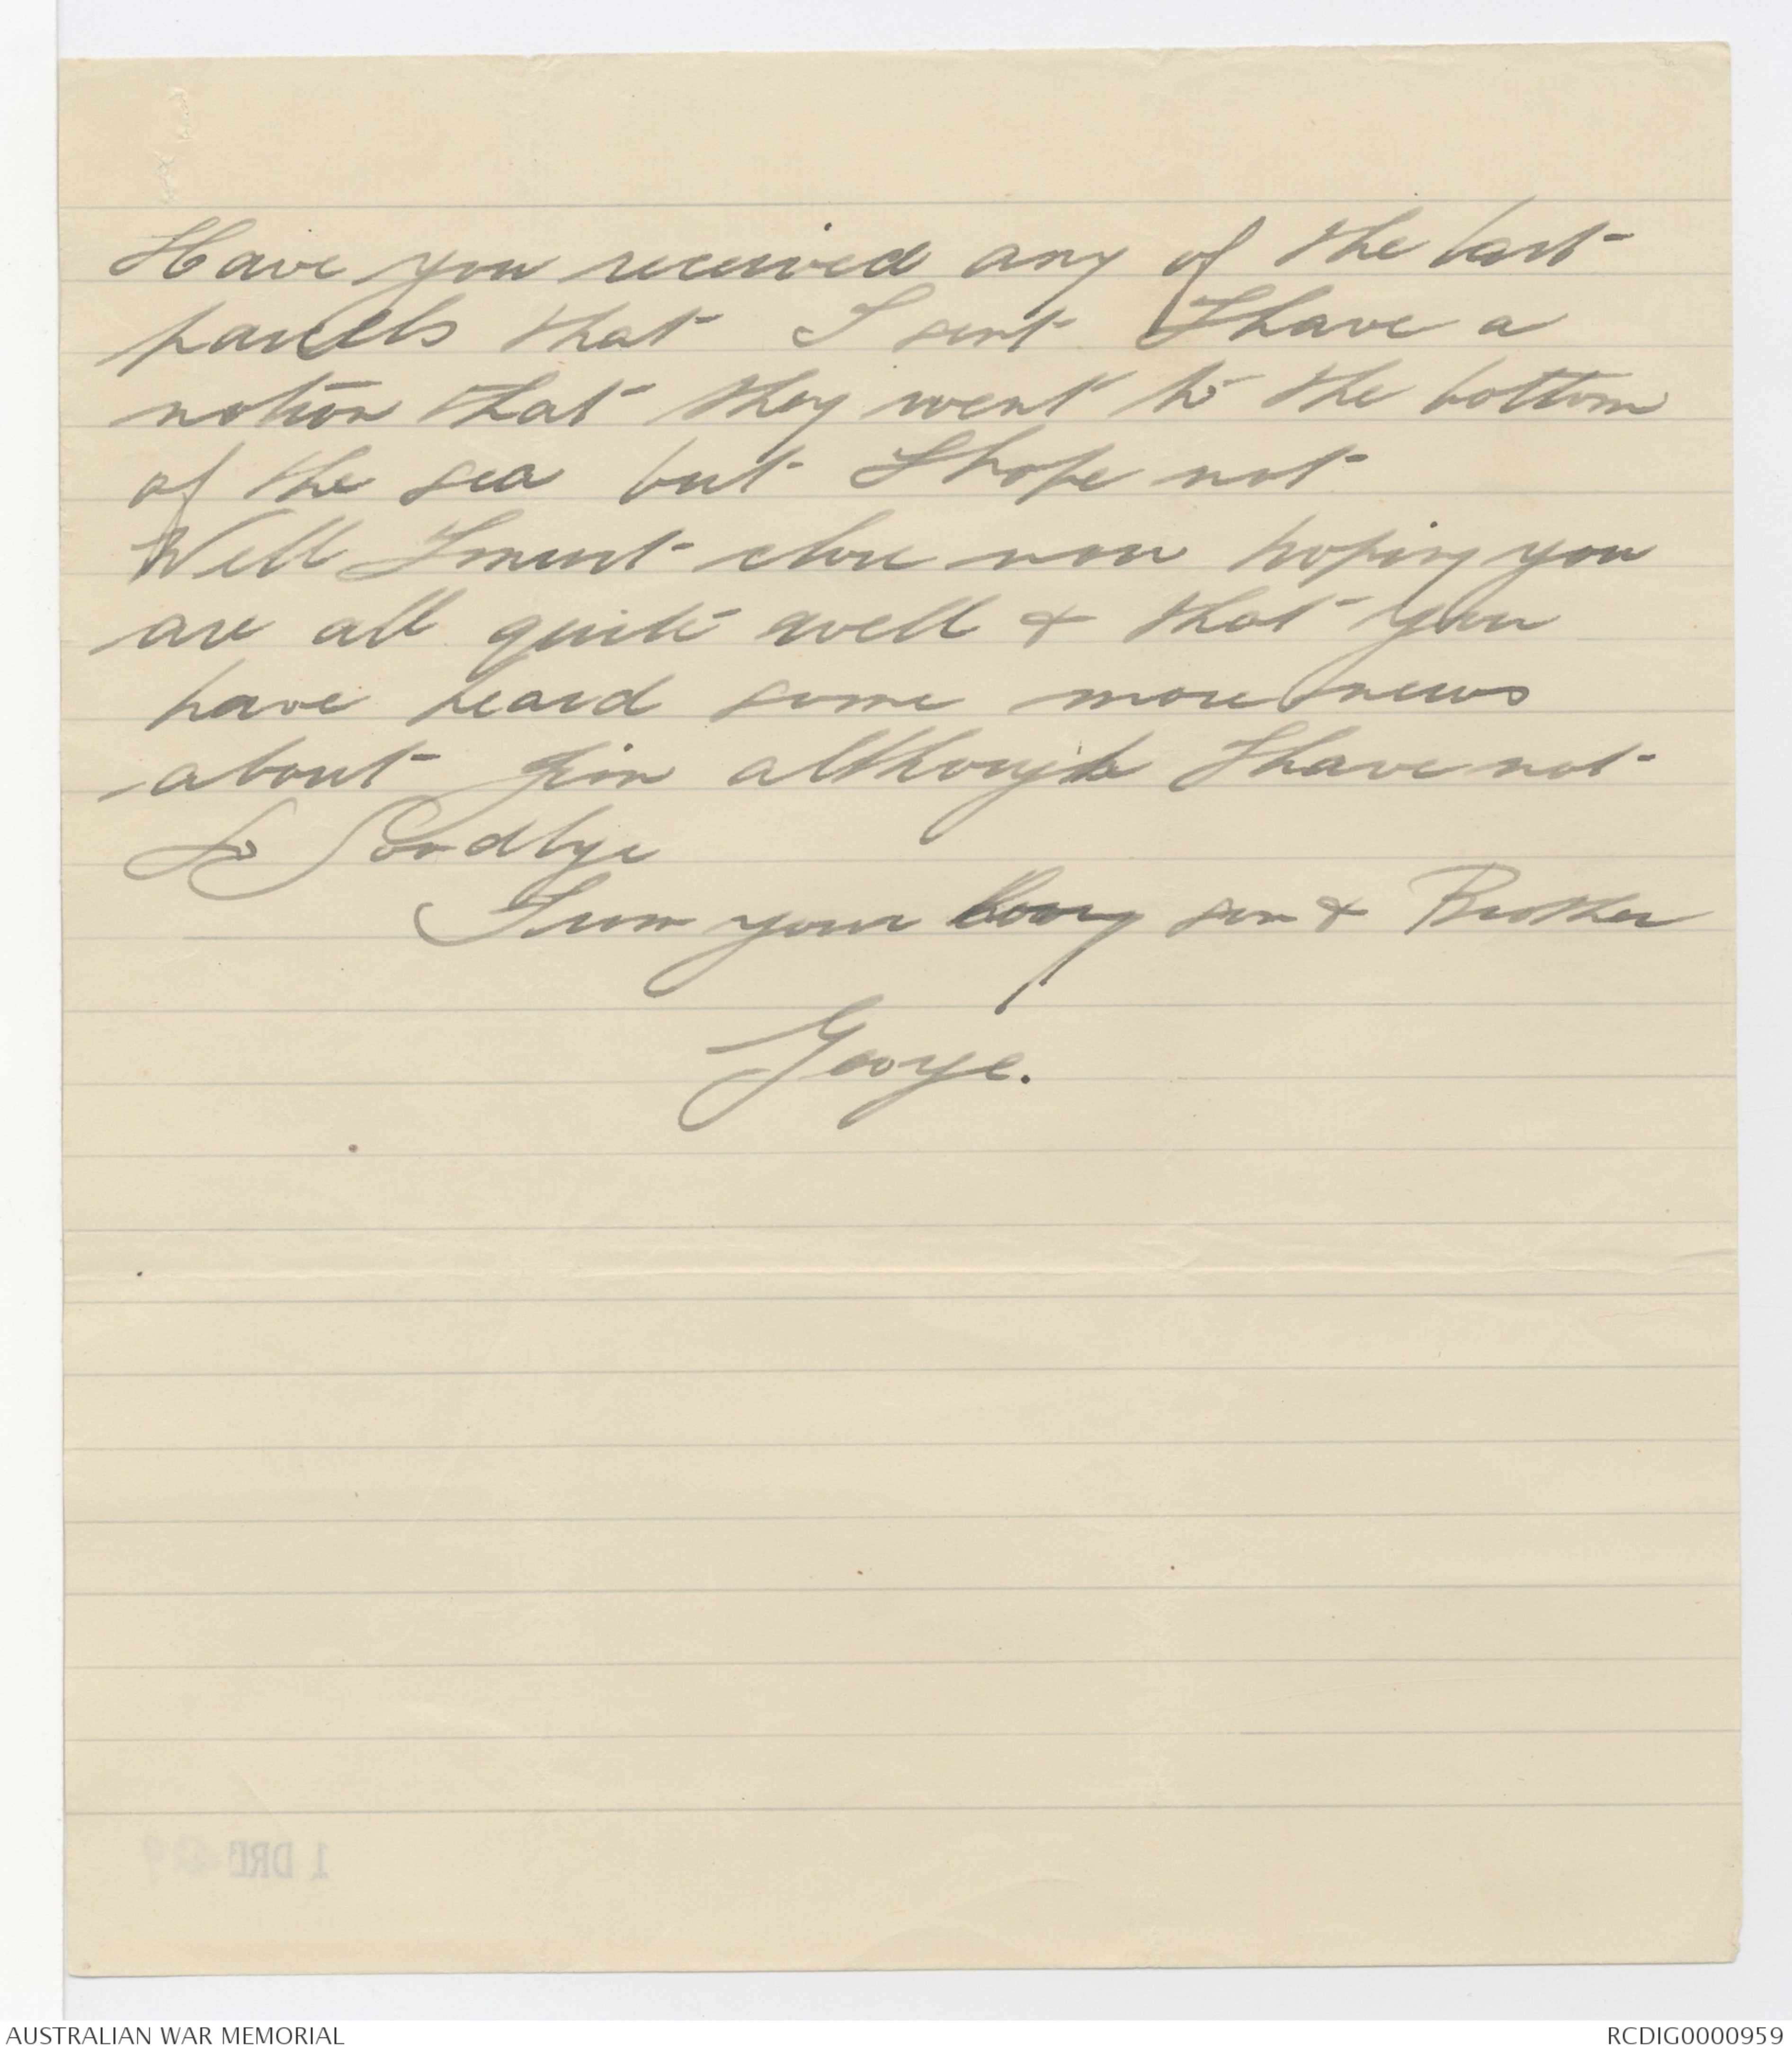 Have you received any of the last
parcels that I sent I have a
notion that they went to the bottom
of the sea but I hope not
Well I must close now hoping you
are all quite well & that you
have heard some more news
about Jim although I have not
So Goodbye
From your loving son & Brother
George.
1 DRL
AUSTRALIAN WAR MEMORIAL
RCDIG0000959